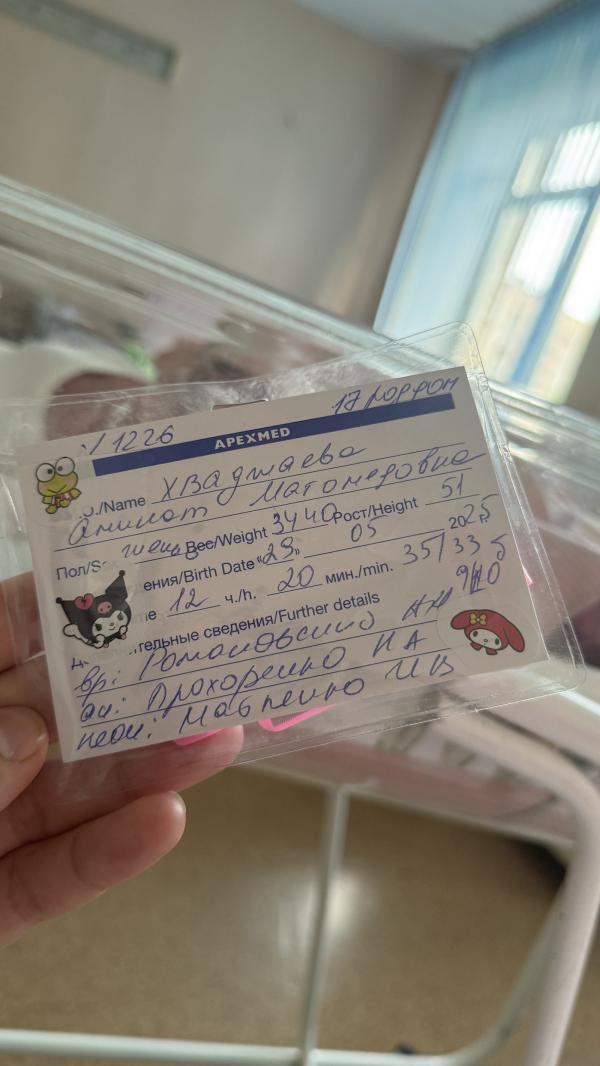 1226 17 роддом
APEXMED
./Name Хваджаева
Аминат Магомедовна
Пол/S жен Вес/Weight 3440 Рост/Height 51
ения/Birth Date "29" 05 2025 г.
е 12 ч./h. 20 мин./min. 35/33 б
тельные сведения/Further details 9/10
вр: Романовский
ак: Прохоренко НА
неон: Мавпенко ИВ